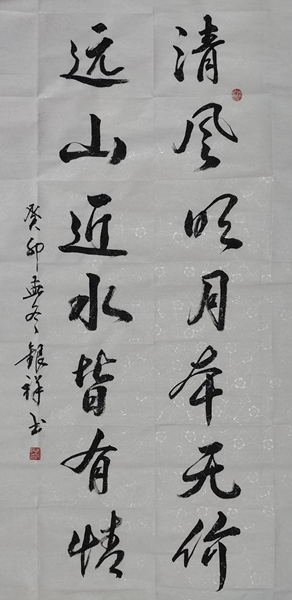 清风明月本无价
远山近水皆有情
癸卯孟冬银祥书